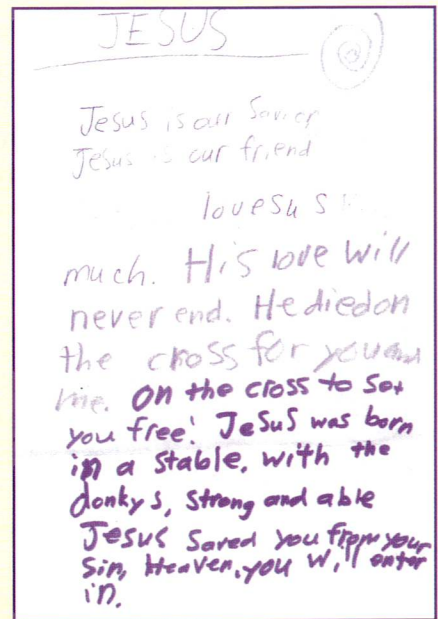 JESUS
Jesus is our Savior
Jesus is our friend
lovesus
much. His love will
never end. He diedon
the cross for you and
me. on the cross to set
you free! JeSuS was born
in a stable, with the
donkys, strong and able
Jesus saved you from your
Sin, Heaven, you will enter
in.